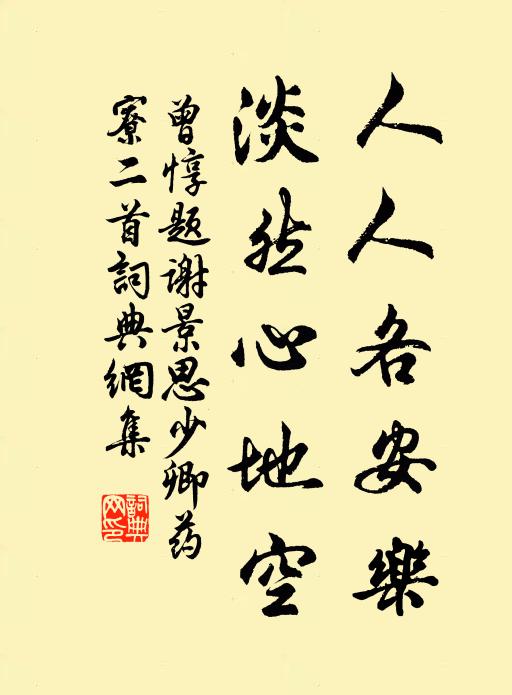 人人各安樂
淡然心地空
曾惇题谢景思少卿药
寮二首詞典網集
詞典
网印